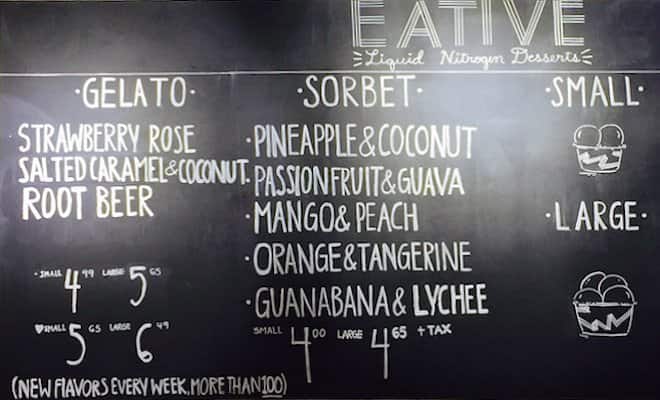 EATIVE
Liquid Nitrogen Desserts
·GELATO·
STRAWBERRY ROSE
SALTED CARAMEL & COCONUT
ROOT BEER
· SMALL 4 99 LARGE 5 65
♥ SMALL 5 65 LARGE 6 49
(NEW FLAVORS EVERY WEEK, MORE THAN 100)
·SORBET·
· PINEAPPLE & COCONUT
· PASSIONFRUIT & GUAVA
· MANGO & PEACH
· ORANGE & TANGERINE
· GUANABANA & LYCHEE
SMALL 4 00 LARGE 4 65 + TAX
·SMALL·
·LARGE·